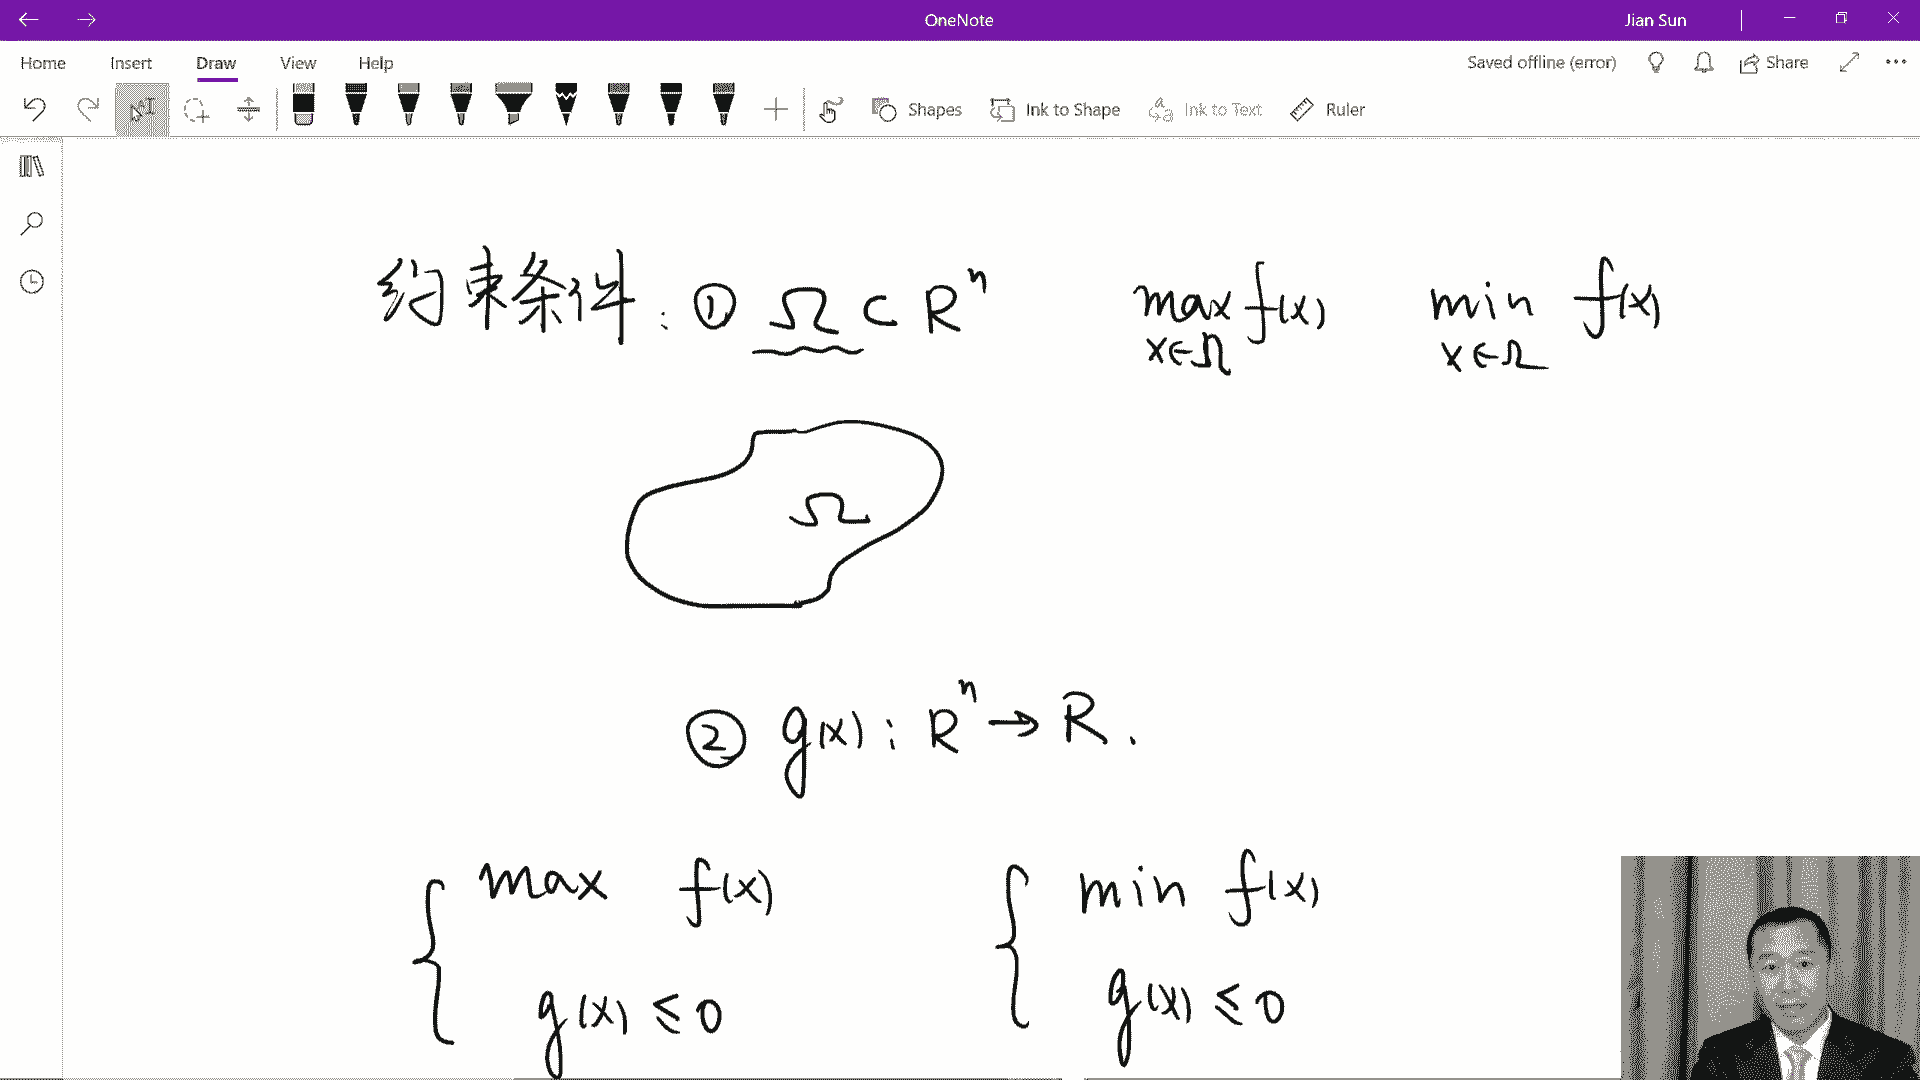 OneNote
Jian Sun
Home Insert Draw View Help
Saved offline (error)
Share
Shapes
Ink to Shape
Ink to Text
Ruler
约束条件: ① Ω ⊂ Rⁿ
max f(x)
x∈Ω
min f(x)
x∈Ω
Ω
② g(x): Rⁿ → R.
{ max f(x)
g(x) ≤ 0
{ min f(x)
g(x) ≤ 0